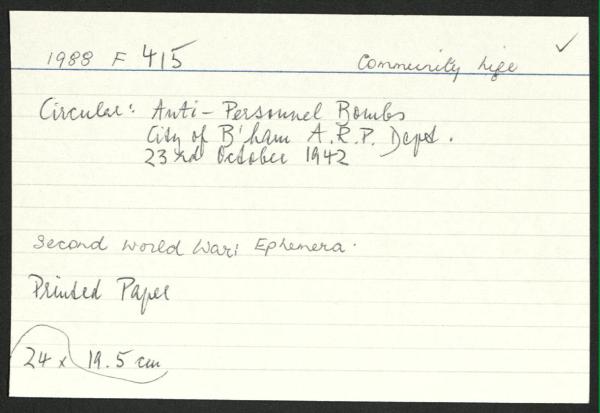 1988 F 415
Community Life
Circular: Anti-Personnel Bombs
City of B'ham A.R.P. Dept.
23rd October 1942
Second World War: Ephemera.
Printed Paper
24 x 19.5 cm